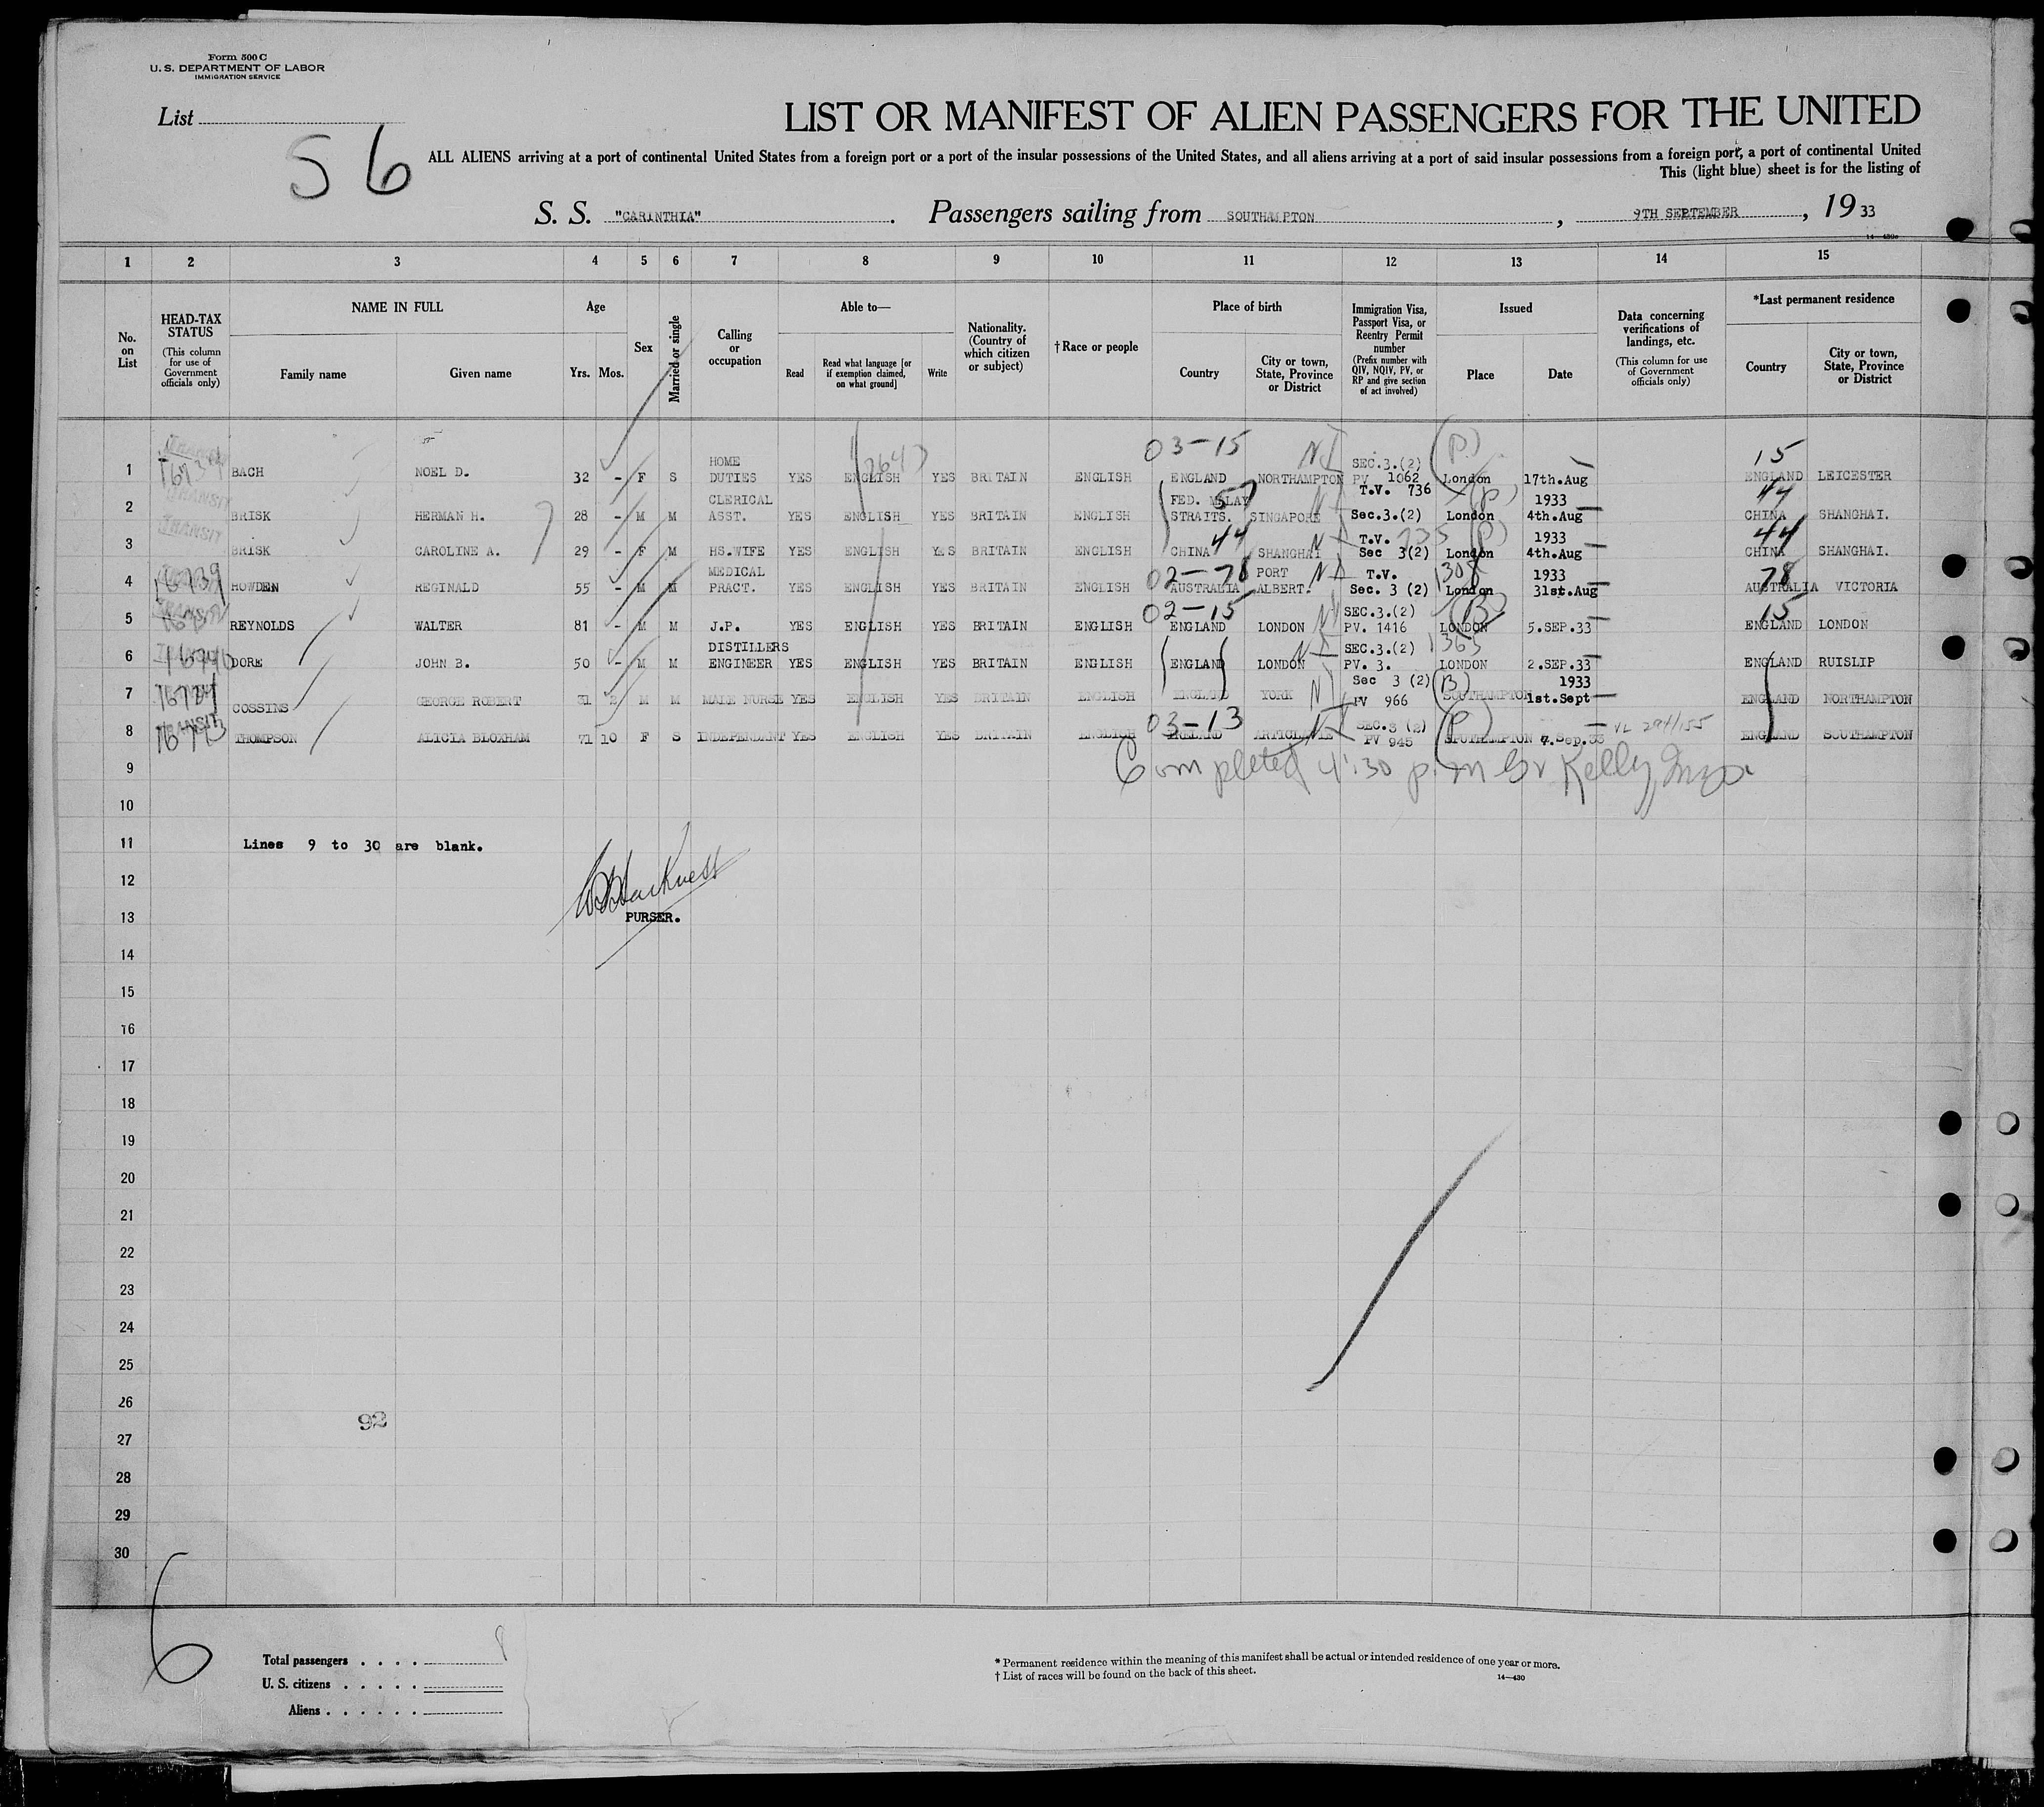 Form 500 C
U. S. DEPARTMENT OF LABOR
IMMIGRATION SERVICE
List
56
LIST OR MANIFEST OF ALIEN PASSENGERS FOR THE UNITED
ALL ALIENS arriving at a port of continental United States from a foreign port or a port of the insular possessions of the United States, and all aliens arriving at a port of said insular possessions from a foreign port, a port of continental United
This (light blue) sheet is for the listing of
S. S. "CARINTHIA". Passengers sailing from SOUTHAMPTON, 9TH SEPTEMBER, 1933
14—430c
1 2 3 4 5 6 7 8 9 10 11 12 13 14 15
No. on List
HEAD-TAX STATUS
(This column for use of Government officials only)
NAME IN FULL
Family name Given name
Age
Yrs. Mos.
Sex
Married or single
Calling or occupation
Able to—
Read
Read what language [or if exemption claimed, on what ground]
Write
Nationality. (Country of which citizen or subject)
†Race or people
Place of birth
Country
City or town, State, Province or District
Immigration Visa, Passport Visa, or Reentry Permit number
(Prefix number with QIV, NQIV, PV, or RP and give section of act involved)
Issued
Place Date
Data concerning verifications of landings, etc.
(This column for use of Government officials only)
*Last permanent residence
Country
City or town, State, Province or District
03-15 15
1 BACH NOEL D. 32 - F S HOME DUTIES YES ENGLISH YES BRITAIN ENGLISH ENGLAND NORTHAMPTON SEC.3.(2) PV 1062 London 17th.Aug 1933 ENGLAND LEICESTER
57 44
2 BRISK HERMAN H. 28 - M M CLERICAL ASST. YES ENGLISH YES BRITAIN ENGLISH FED. MALAY STRAITS. SINGAPORE T.V. 736 Sec.3.(2) London 4th.Aug 1933 CHINA SHANGHAI.
44 44
3 BRISK CAROLINE A. 29 - F M HS.WIFE YES ENGLISH YES BRITAIN ENGLISH CHINA SHANGHAI T.V. 735 Sec 3(2) London 4th.Aug 1933 CHINA SHANGHAI.
02-78 78
4 HOWDEN REGINALD 55 - M M MEDICAL PRACT. YES ENGLISH YES BRITAIN ENGLISH AUSTRALIA PORT ALBERT. T.V. Sec. 3 (2) London 31st.Aug AUSTRALIA VICTORIA
02-15 15
5 REYNOLDS WALTER 81 - M M J.P. YES ENGLISH YES BRITAIN ENGLISH ENGLAND LONDON SEC.3.(2) PV. 1416 LONDON 5.SEP.33 ENGLAND LONDON
6 DORE JOHN B. 50 - M M DISTILLERS ENGINEER YES ENGLISH YES BRITAIN ENGLISH ENGLAND LONDON SEC.3.(2) 1365 PV. 3. LONDON 2.SEP.33 ENGLAND RUISLIP
7 COSSINS GEORGE ROBERT M M MALE NURSE YES ENGLISH YES BRITAIN ENGLISH ENGLAND YORK Sec 3 (2) PV 966 SOUTHAMPTON 1933 1st.Sept ENGLAND NORTHAMPTON
03-13
8 THOMPSON ALICIA BLOXHAM 71 10 F S INDEPENDANT YES ENGLISH YES BRITAIN ENGLISH IRELAND SEC.3 (2) PV 945 SOUTHAMPTON 7.Sep.33 ENGLAND SOUTHAMPTON
9 Completed 4:30 p.m Kelly, Insp.
10
11 Lines 9 to 30 are blank.
12
13 PURSER.
14
15
16
17
18
19
20
21
22
23
24
25
26
92
27
28
29
30
6
Total passengers . . . . 8
U. S. citizens . . . . .
Aliens . . . . . .
* Permanent residence within the meaning of this manifest shall be actual or intended residence of one year or more.
† List of races will be found on the back of this sheet.
14—430